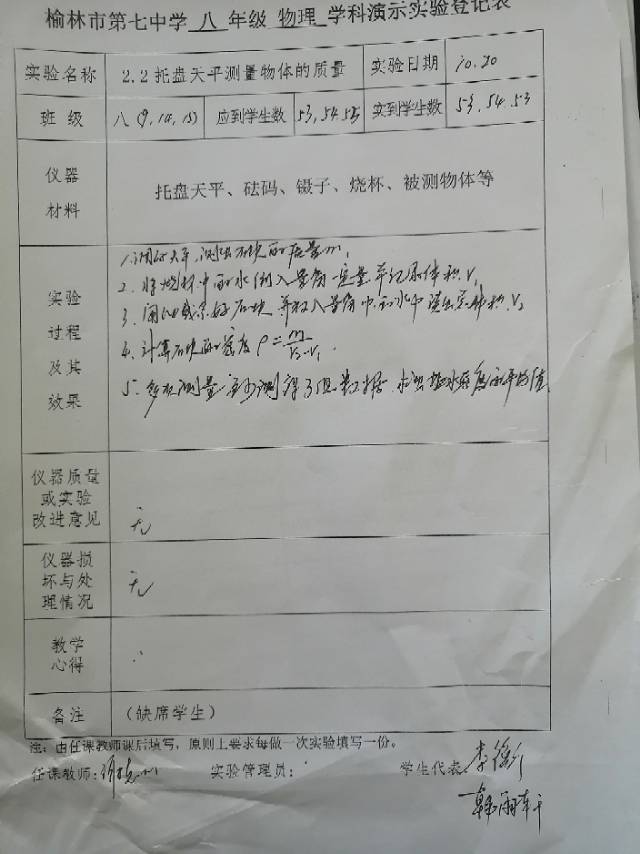 榆林市第七中学 八 年级 物理 学科演示实验登记表
实验名称 2.2托盘天平测量物体的质量 实验日期 10.20
班 级 八(9,10,15) 应到学生数 53,54,53 实到学生数 53,54,53
仪器
材料
托盘天平、砝码、镊子、烧杯、被测物体等
实验
过程
及其
效果
1.调好天平,测出石块的质量m₁
2.将烧杯中的水倒入量筒一定量 并记录体积V₁
3.用细线系好石块 并放入量筒中 水中 读出总体积V₂
4.计算石块的密度 ρ=m/V₂-V₁
5.多次测量 至少测得3组数据 求出 密度的平均值
仪器质量
或实验
改进意见
无
仪器损
坏与处
理情况
无
教学
心得
备注 (缺席学生)
注:由任课教师课后填写,原则上要求每做一次实验填写一份。
任课教师: 实验管理员: 学生代表